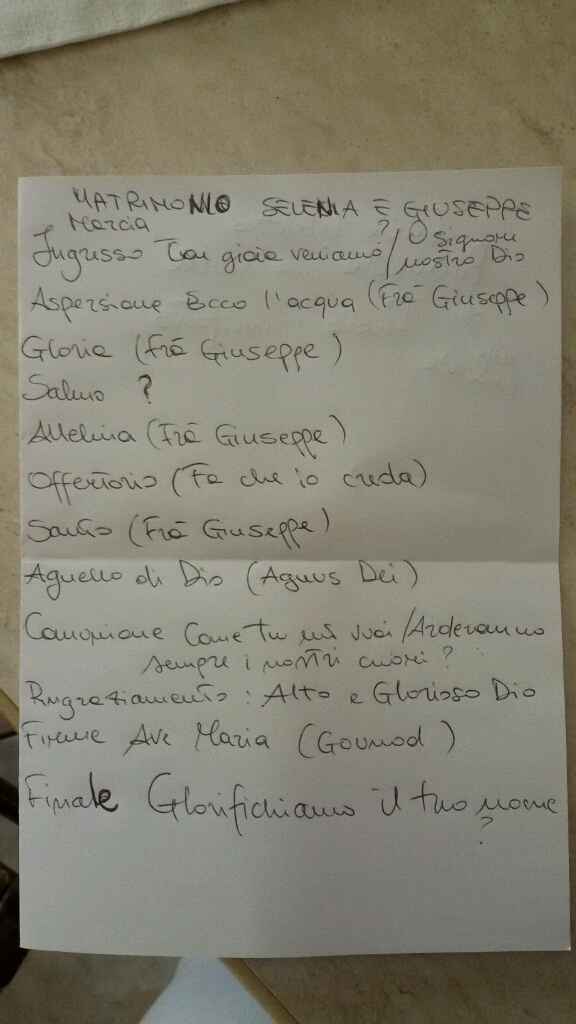 MATRIMONIO SELENIA E GIUSEPPE
Marcia
Ingresso Con gioia veniamo?/O Signore
nostro Dio
Aspersione Ecco l'acqua (Frà Giuseppe)
Gloria (Frà Giuseppe)
Salmo ?
Alleluia (Frà Giuseppe)
Offertorio (Fa che io creda)
Santo (Frà Giuseppe)
Agnello di Dio (Agnus Dei)
Comunione Come tu mi vuoi/Arderanno
sempre i nostri cuori?
Ringraziamento: Alto e Glorioso Dio
Firme Ave Maria (Gounod)
Finale Glorifichiamo il tuo nome
?